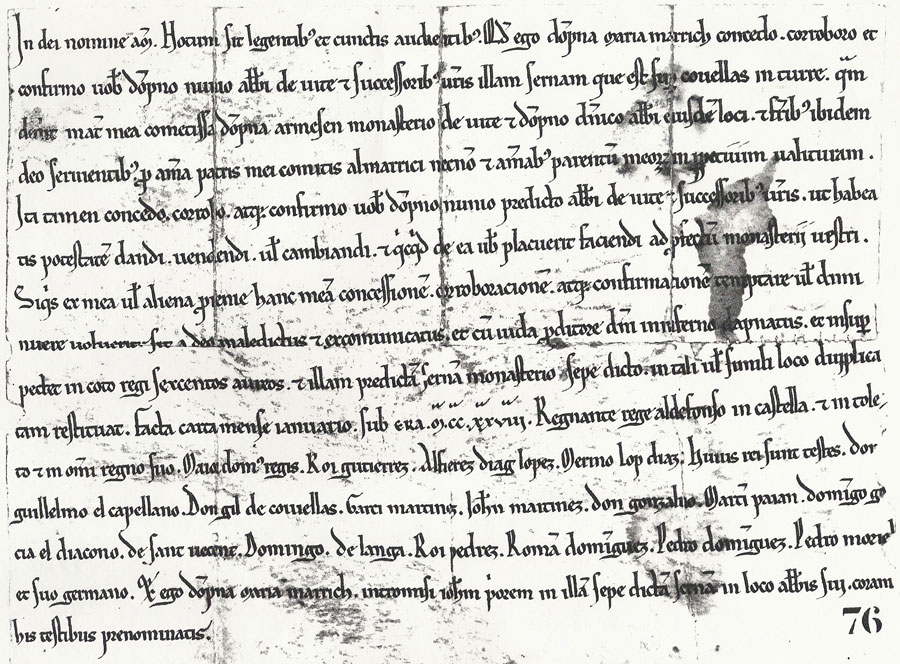 In dei nomine am̅. Notum sit legentib⁹ et cunctis audientib⁹. Q̅d ego do̅pna maria manrich concedo. corroboro et
confirmo uob̅ do̅pno nunio abb̅i de uite ⁊ successorib⁹ ur̅is illam sernam que est couellas in turre. qm̅
mat̅ mea comitissa do̅pna armesen monasterio de uite ⁊ do̅pno dn̅ico abb̅i eiusde̅ loci. ⁊ fr̅ib⁹ ibidem
deo seruientib⁹ p̱ am̅a patris mei comitis almarrici necno̅ ⁊ am̅ab⁹ parentu̅ meoꝝ in ppetuum ualituram.
Ita tamen concedo. corrobo. atqꝫ confirmo uob̅ do̅pno nunio predicto abb̅i de uite ⁊ successorib⁹ ur̅is. ut habea
tis potestate̅ dandi. uendendi. ul̅ cambiandi. ⁊ qͥcqͥd de ea ub̅ placuerit faciendi ad pfectu̅ monasterij uestri.
Siqͥs ex mea ul̅ aliena pienie hanc mea̅ concessione̅. corroboracione̅. atqꝫ confirmacione̅ temptare ul̅ dimi
nuere uoluerit sit a deo maledictus ⁊ excomunicatus. et cu̅ iuda pditore dn̅i in inferno dapnatus. et insup̱
pectet in coto regi sexcentos aureos. ⁊ illam predicta̅ serna̅ monasterio sepe dicto. in tali ul̅ simili loco dupplica
tam restituat. Facta carta mense ianuario. sub era. m̅.cc.xxviii. Regnante rege aldefonso in castella. ⁊ in tole
to ⁊ in om̅i regno suo. Maiordom⁹ regis. Roi gutierrez. Alfierez diag lopez. Merino lop diaz. Huius rei sunt testes. dor̅
guillelmo el capellano. Don gil de couuellas. Garci martinz. Joh̅n martinez. don gonzaluo. Marti̅ paian. domi̅go gͣ
cia el diacono. de sant uicent. Domingo. de langa. Roi pedrez. Roma̅ domi̅guez. Pedro domi̅guez. Pedro
et suo germano. Et ego do̅pna maria manrich. intromisi ioh̅m pͥorem in illa̅ sepe dicta̅ serna̅ in loco abb̅is sui. coram
his testibus prenominatis.
76